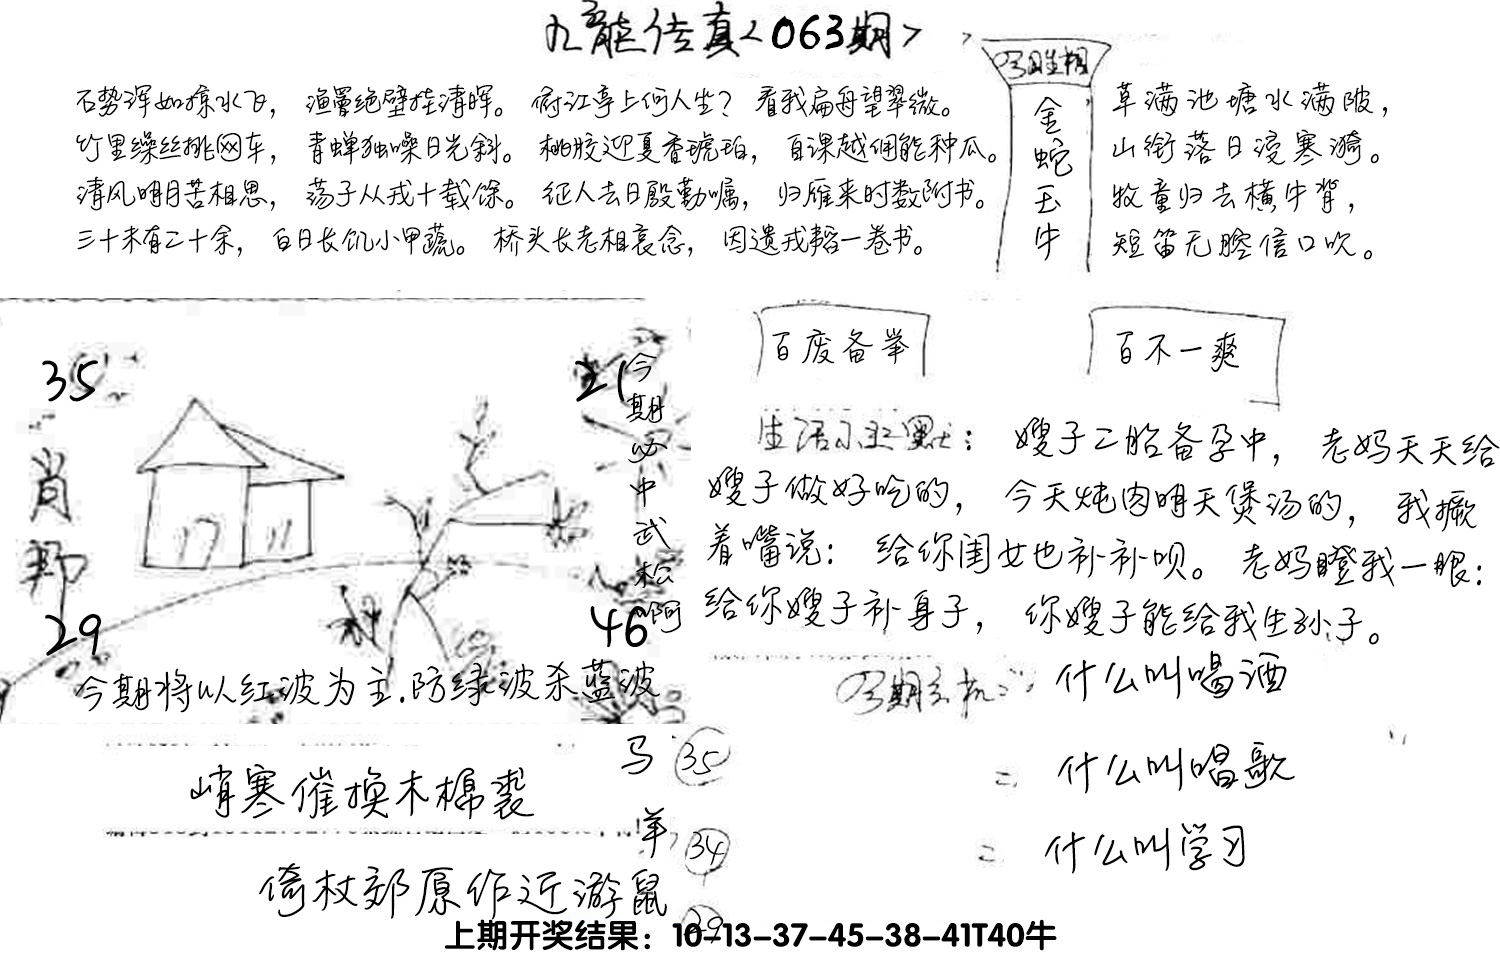 九龙传真<063期>
石势浑如掠水飞，渔罾绝壁挂清晖。俯江亭上何人坐？看我扁舟望翠微。
竹里缲丝挑网车，青蝉独噪日光斜。桃胶迎夏香琥珀，自课越佣能种瓜。
清风明月苦相思，荡子从戎十载馀。征人去日殷勤嘱，归雁来时数附书。
三十未有二十余，白日长饥小甲蔬。桥头长老相哀念，因遗戎韬一卷书。
今期生相
金蛇玉牛
草满池塘水满陂，
山衔落日浸寒漪。
牧童归去横牛背，
短笛无腔信口吹。
35
21
肖
29
46
今期必中武松啊
今期将以红波为主.防绿波杀蓝波
百废备举
百不一爽
生活小幽默：嫂子二胎备孕中，老妈天天给
嫂子做好吃的，今天炖肉明天煲汤的，我撅
着嘴说：给你闺女也补补呗。老妈瞪我一眼：
给你嫂子补身子，你嫂子能给我生孙子。
今期玄机：什么叫喝酒
= 什么叫唱歌
= 什么叫学习
马 35
羊 34
29
峭寒催换木棉裘
倚杖郊原作近游鼠
上期开奖结果：10-13-37-45-38-41T40牛